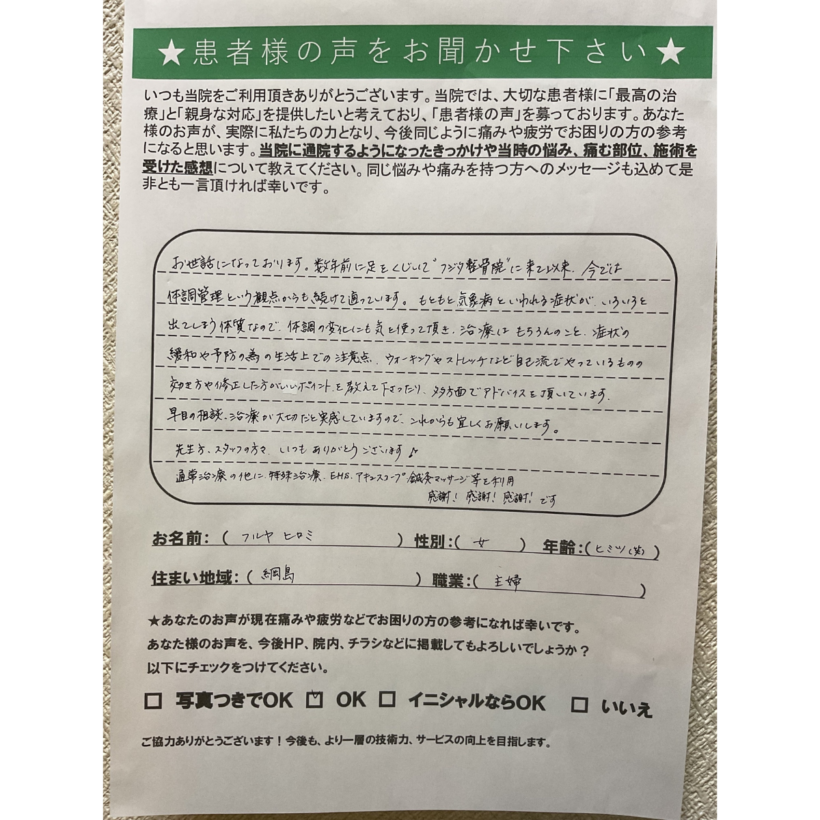 ★患者様の声をお聞かせ下さい★
いつも当院をご利用頂きありがとうございます。当院では、大切な患者様に「最高の治
療」と「親身な対応」を提供したいと考えており、「患者様の声」を募っております。あなた
様のお声が、実際に私たちの力となり、今後同じように痛みや疲労でお困りの方の参考
になると思います。当院に通院するようになったきっかけや当時の悩み、痛む部位、施術を
受けた感想について教えてください。同じ悩みや痛みを持つ方へのメッセージも込めて是
非とも一言頂ければ幸いです。
お世話になっております。数年前に足をくじいて"フジタ整骨院"に来て以来、今では
体調管理という観点からも続けて通っています。もともと気象病といわれる症状が、いろいろと
出てしまう体質なので、体調の変化にも気を使って頂き、治療はもちろんのこと、症状の
緩和や予防の為の生活上での注意点、ウォーキングやストレッチなど自己流でやっているものの
効き方や修正した方がいいポイントを教えて下さったり、多方面でアドバイスを頂いています。
早目の相談、治療が大切だと実感していますので、これからも宜しくお願いします。
先生方、スタッフの方々、いつもありがとうございます♪
通常治療の他に、特殊治療、EHS、アキュスコープ、鍼灸マッサージ等を利用
感謝!感謝!感謝!です
お名前:(フルヤ ヒロミ)性別:(女)年齢:(ヒミツ(笑))
住まい地域:(綱島)職業:(主婦)
★あなたのお声が現在痛みや疲労などでお困りの方の参考になれば幸いです。
あなた様のお声を、今後HP、院内、チラシなどに掲載してもよろしいでしょうか?
以下にチェックをつけてください。
□ 写真つきでOK ☑ OK □ イニシャルならOK □ いいえ
ご協力ありがとうございます!今後も、より一層の技術力、サービスの向上を目指します。